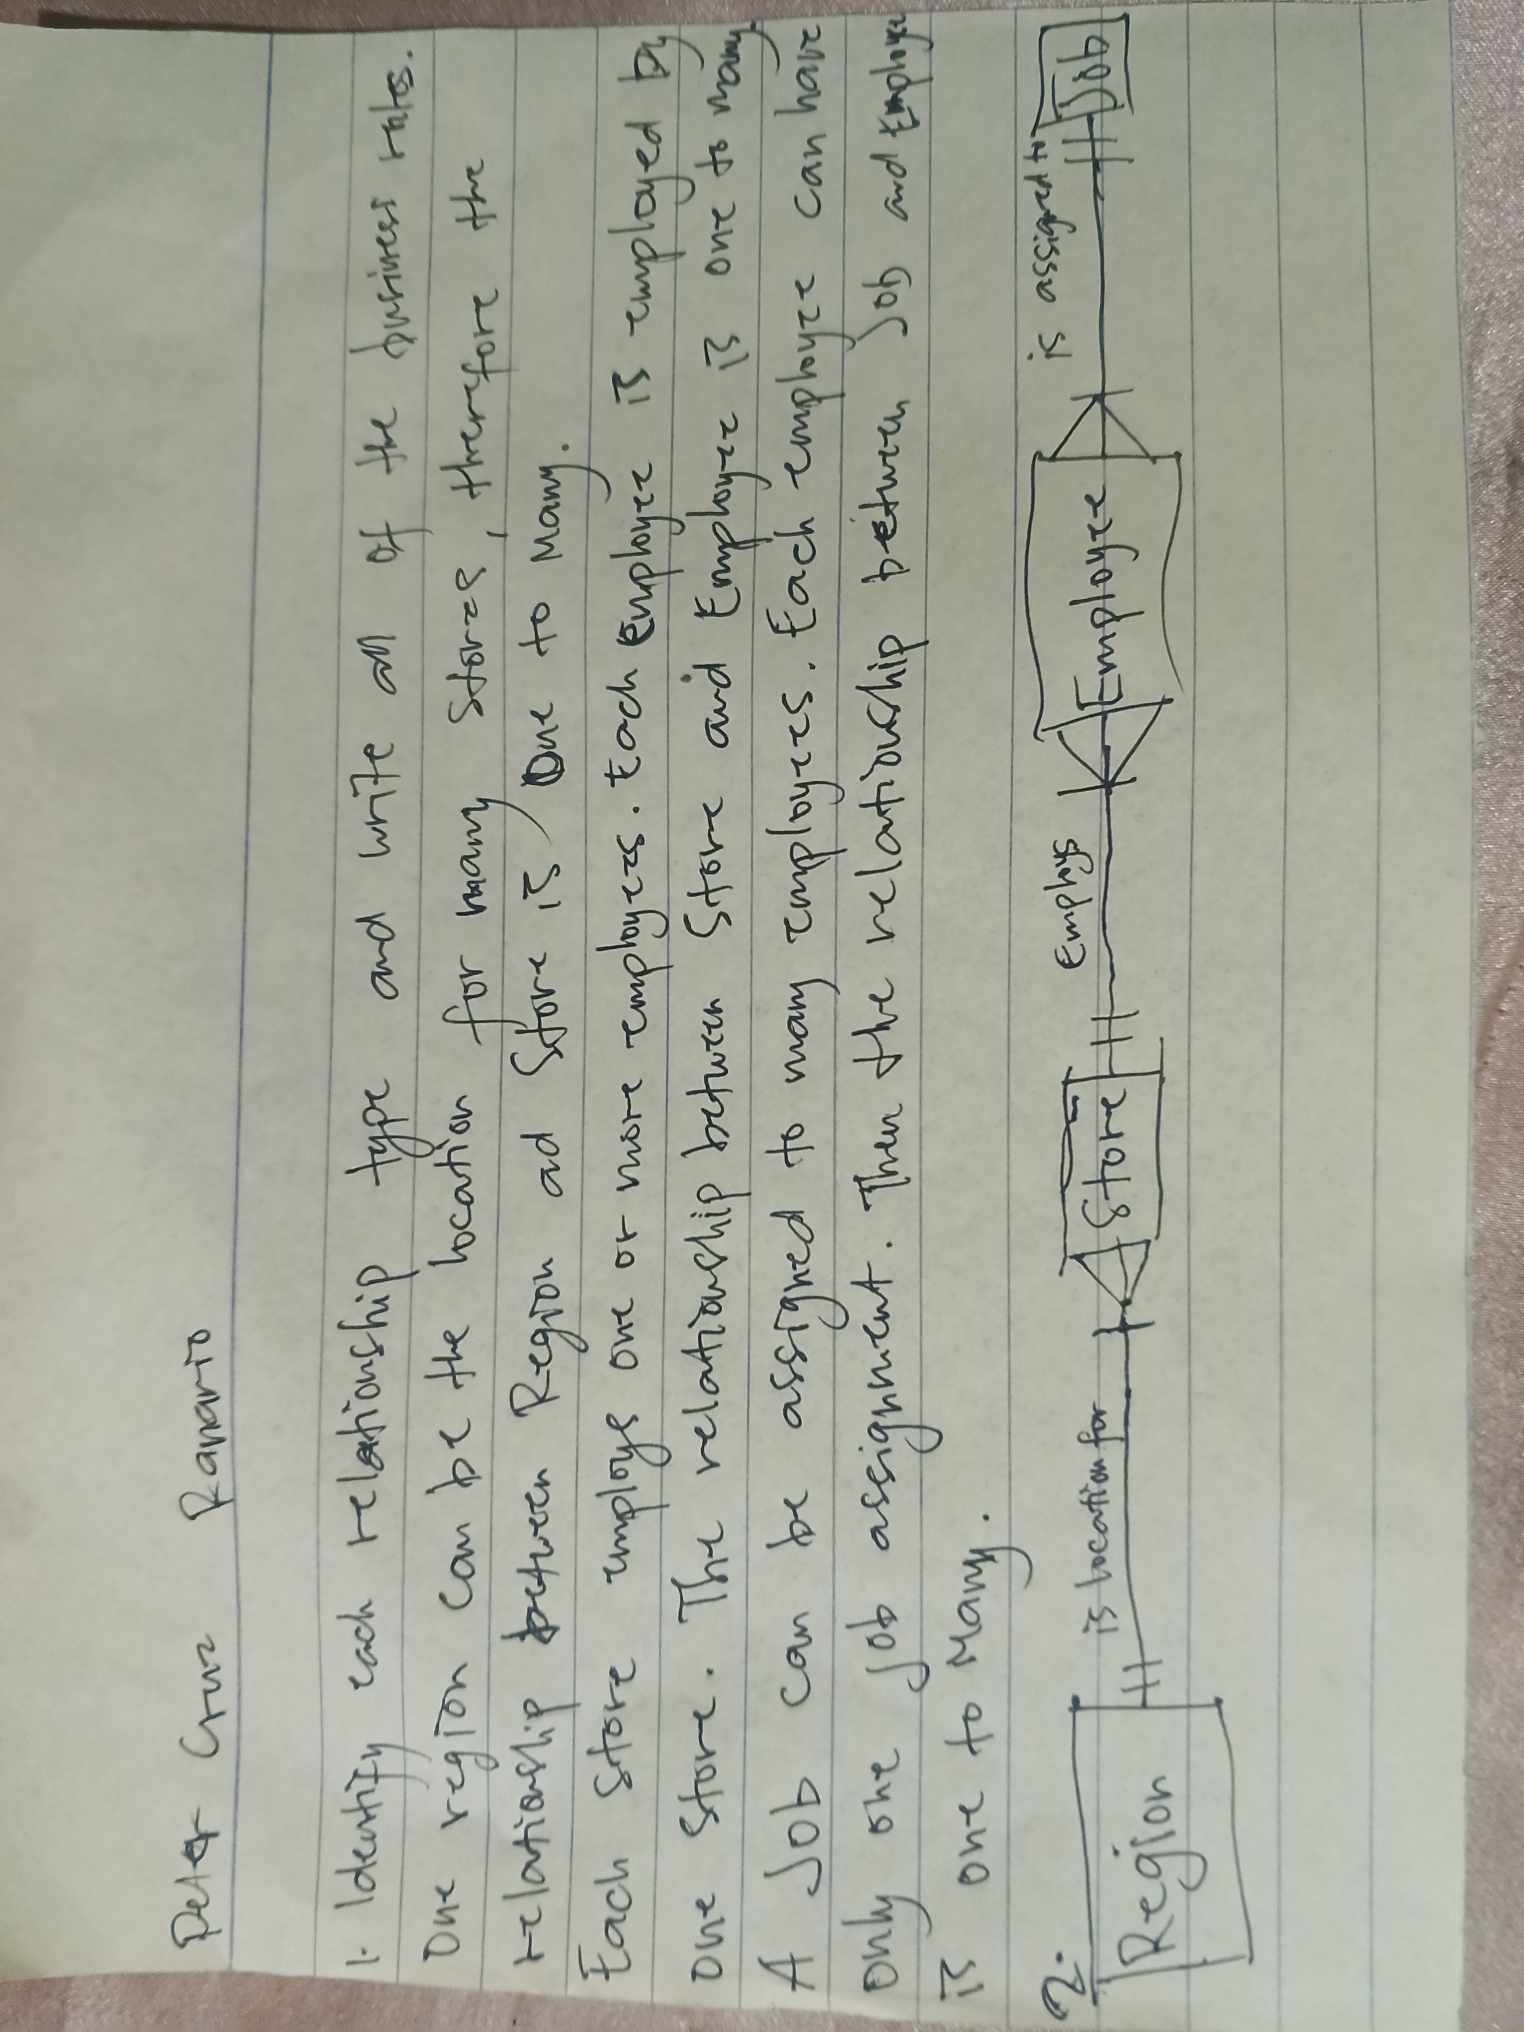 Peter Cruz Ranario
1. Identify each relationship type and write all of the business rules.
One region can be the location for many stores, therefore the
relationship between Region ad Store is One to Many.
Each Store employs one or more employees. Each Employee is employed by
one store. The relationship between Store and Employee is one to many
A Job can be assigned to many employees. Each employee can have
only one job assignment. Then the relationship between Job and Employee
is one to Many.
2.
Region is location for Store Employs Employee is assigned to Job